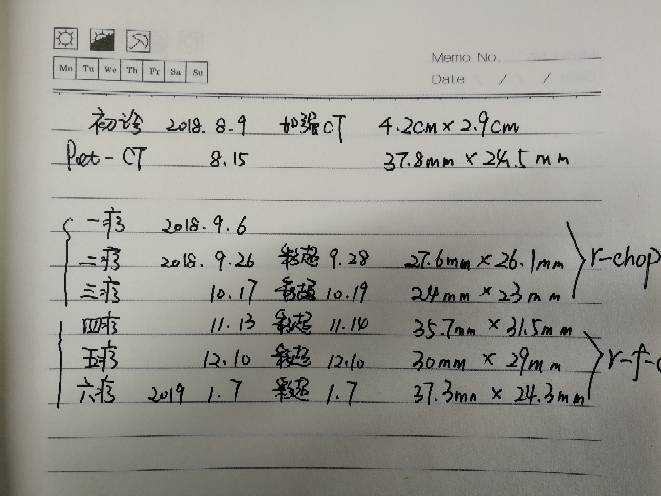 Memo No.
Mo Tu We Th Fr Sa Su
Date / /
初诊 2018.8.9 加强CT 4.2cm×2.9cm
Pet-CT 8.15 37.8mm×24.5mm
一疗 2018.9.6
二疗 2018.9.26 彩超 9.28 27.6mm×26.1mm r-chop
三疗 10.17 彩超 10.19 24mm×23mm
四疗 11.13 彩超 11.14 35.7mm×31.5mm
五疗 12.10 彩超 12.10 30mm×29mm r-f-c
六疗 2019 1.7 彩超 1.7 37.3mm×24.3mm